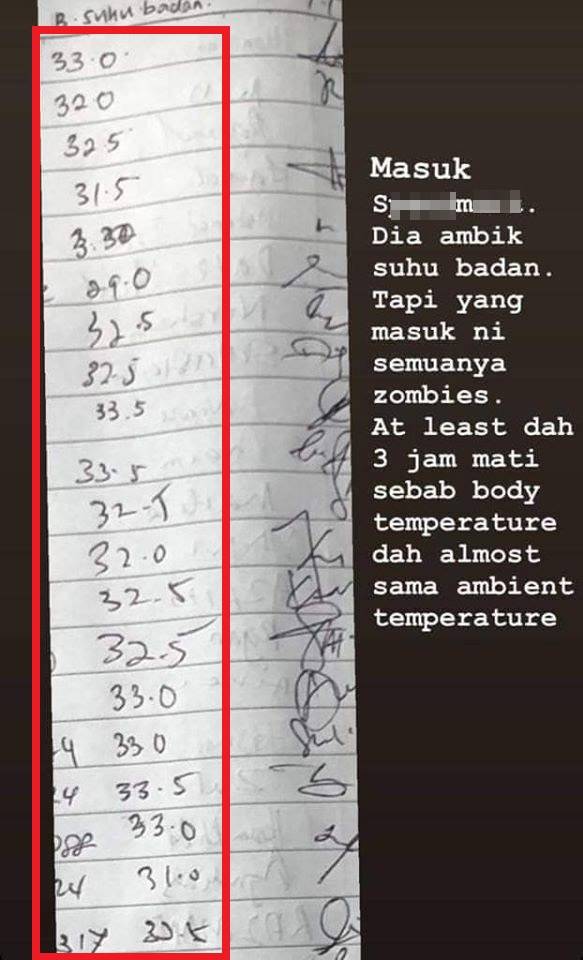 B. suhu badan.
33.0
32.0
32.5
31.5
3.30
29.0
32.5
32.5
33.5
33.5
32.5
32.0
32.5
32.5
33.0
24 33.0
24 33.5
088 33.0
24 31.0
317
Masuk
Dia ambik
suhu badan.
Tapi yang
masuk ni
semuanya
zombies.
At least dah
3 jam mati
sebab body
temperature
dah almost
sama ambient
temperature